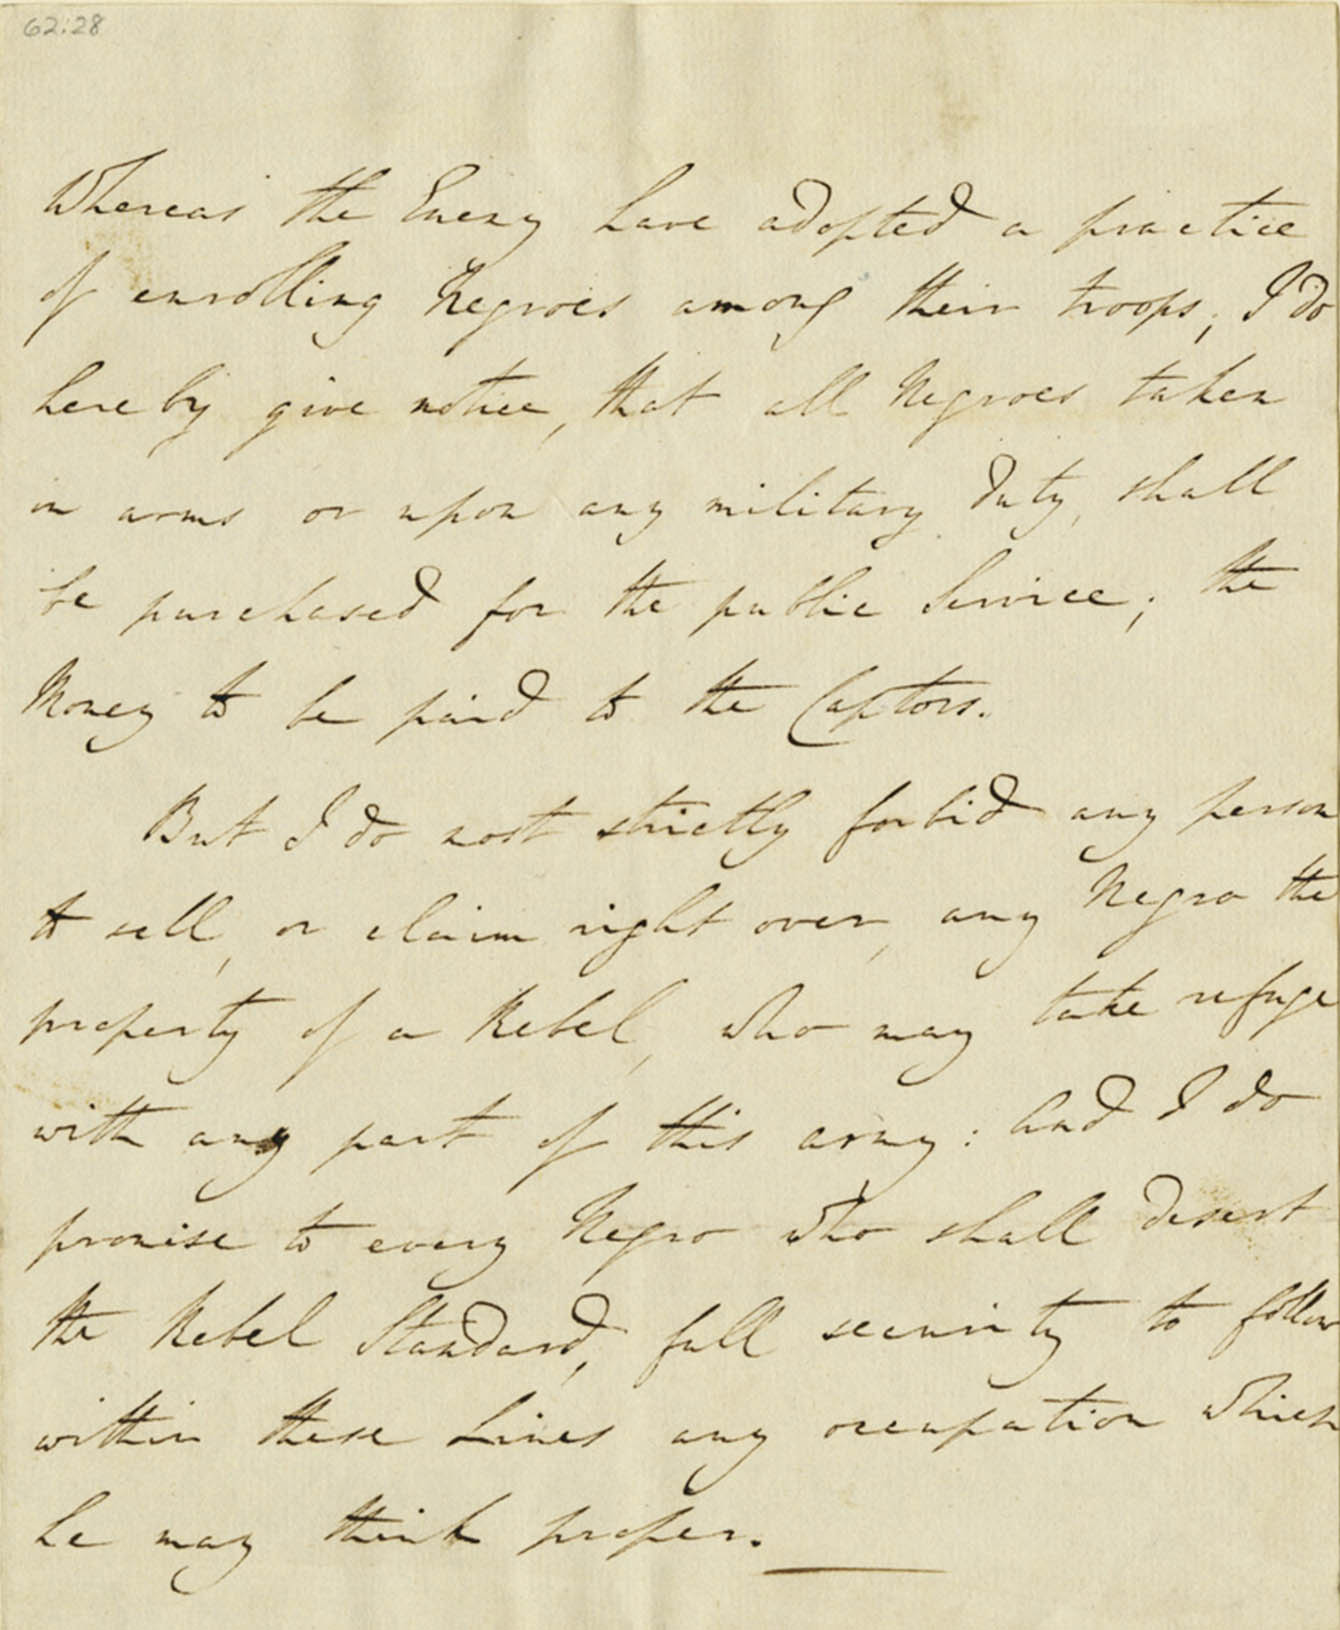 62:28
Whereas the Enemy have adopted a practice
of enrolling Negroes among their troops; I do
hereby give notice, that all Negroes taken
in arms or upon any military duty, shall
be purchased for the public Service; the
Money to be paid to the Captors.
But I do most strictly forbid any person
to sell, or claim right over, any Negro the
property of a Rebel, who may take refuge
with any part of this army: And I do
promise to every Negro who shall desert
the Rebel Standard, full security to follow
within these Lines any occupation which
he may think proper.